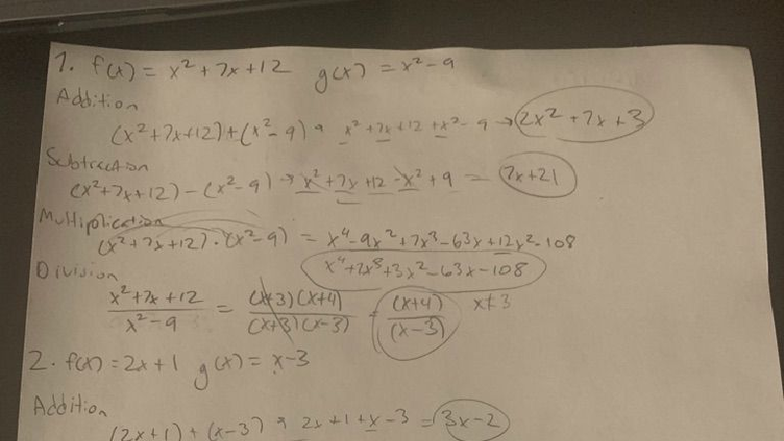 1. f(x) = x² + 7x + 12 g(x) = x² - 9
Addition
(x² + 7x + 12) + (x² - 9) → x² + 7x + 12 + x² - 9 → 2x² + 7x + 3
Subtraction
(x² + 7x + 12) - (x² - 9) → x² + 7x + 12 - x² + 9 = 7x + 21
Multiplication
(x² + 7x + 12) · (x² - 9) = x⁴ - 9x² + 7x³ - 63x + 12x² - 108
x⁴ + 7x³ + 3x² - 63x - 108
Division
(x² + 7x + 12)/(x² - 9) = ((x+3)(x+4))/((x+3)(x-3)) = (x+4)/(x-3) x≠3
2. f(x) = 2x + 1 g(x) = x - 3
Addition
(2x+1) + (x-3) → 2x + 1 + x - 3 = 3x - 2